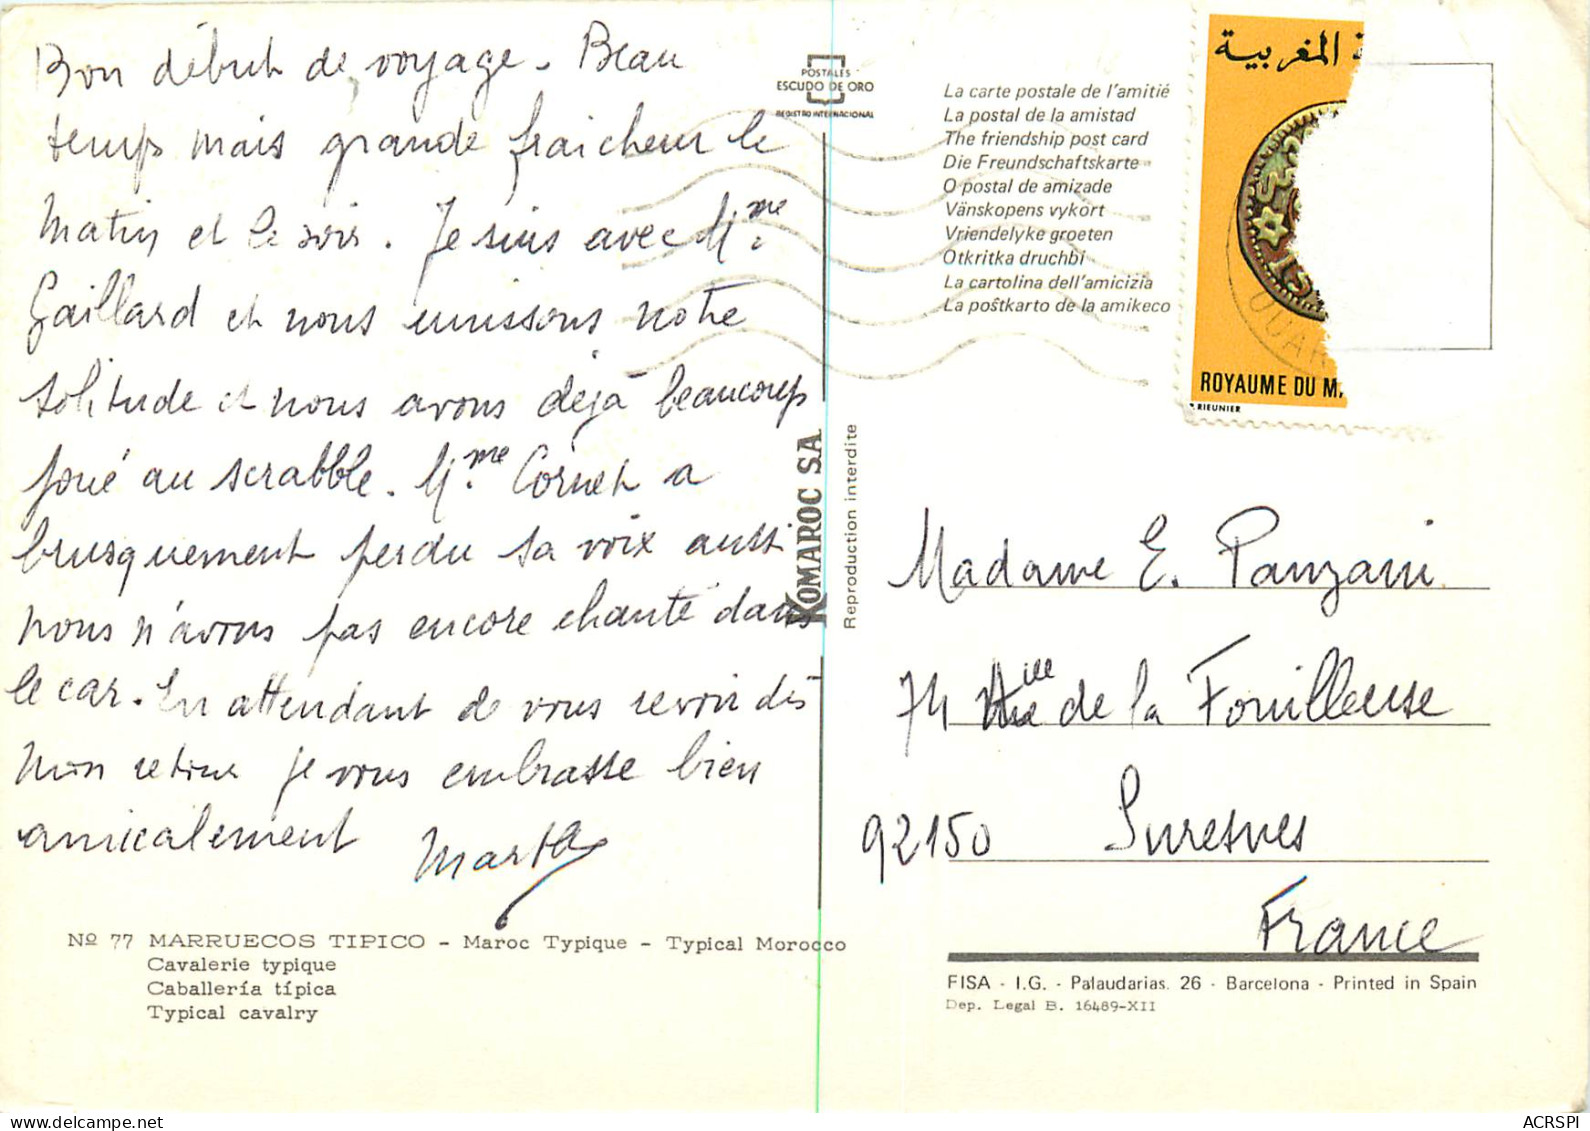 Bon début de voyage. Beau
temps mais grande fraicheur le
matin et le soir. Je suis avec Mme
Gaillard et nous unissons notre
solitude et nous avons déjà beaucoup
joué au scrabble. Mme Cornet a
brusquement perdu sa voix aussi
nous n'avons pas encore chanté dans
le car. En attendant de vous revoir dès
mon retour je vous embrasse bien
amicalement Marta
Nº 77 MARRUECOS TIPICO - Maroc Typique - Typical Morocco
Cavalerie typique
Caballería típica
Typical cavalry
POSTALES
ESCUDO DE ORO
REGISTRO INTERNACIONAL
KOMAROC SA
Reproduction interdite
La carte postale de l'amitié
La postal de la amistad
The friendship post card
Die Freundschaftskarte
O postal de amizade
Vänskopens vykort
Vriendelyke groeten
Otkritka druchbi
La cartolina dell'amicizia
La poŝtkarto de la amikeco
المغربية
OUAR
ROYAUME DU M
RIEUNIER
Madame E. Panzani
74 Allée de la Fouilleuse
92150 Suresnes
France
FISA - I.G. - Palaudarias. 26 - Barcelona - Printed in Spain
Dep. Legal B. 16489-XII
ACRSPI